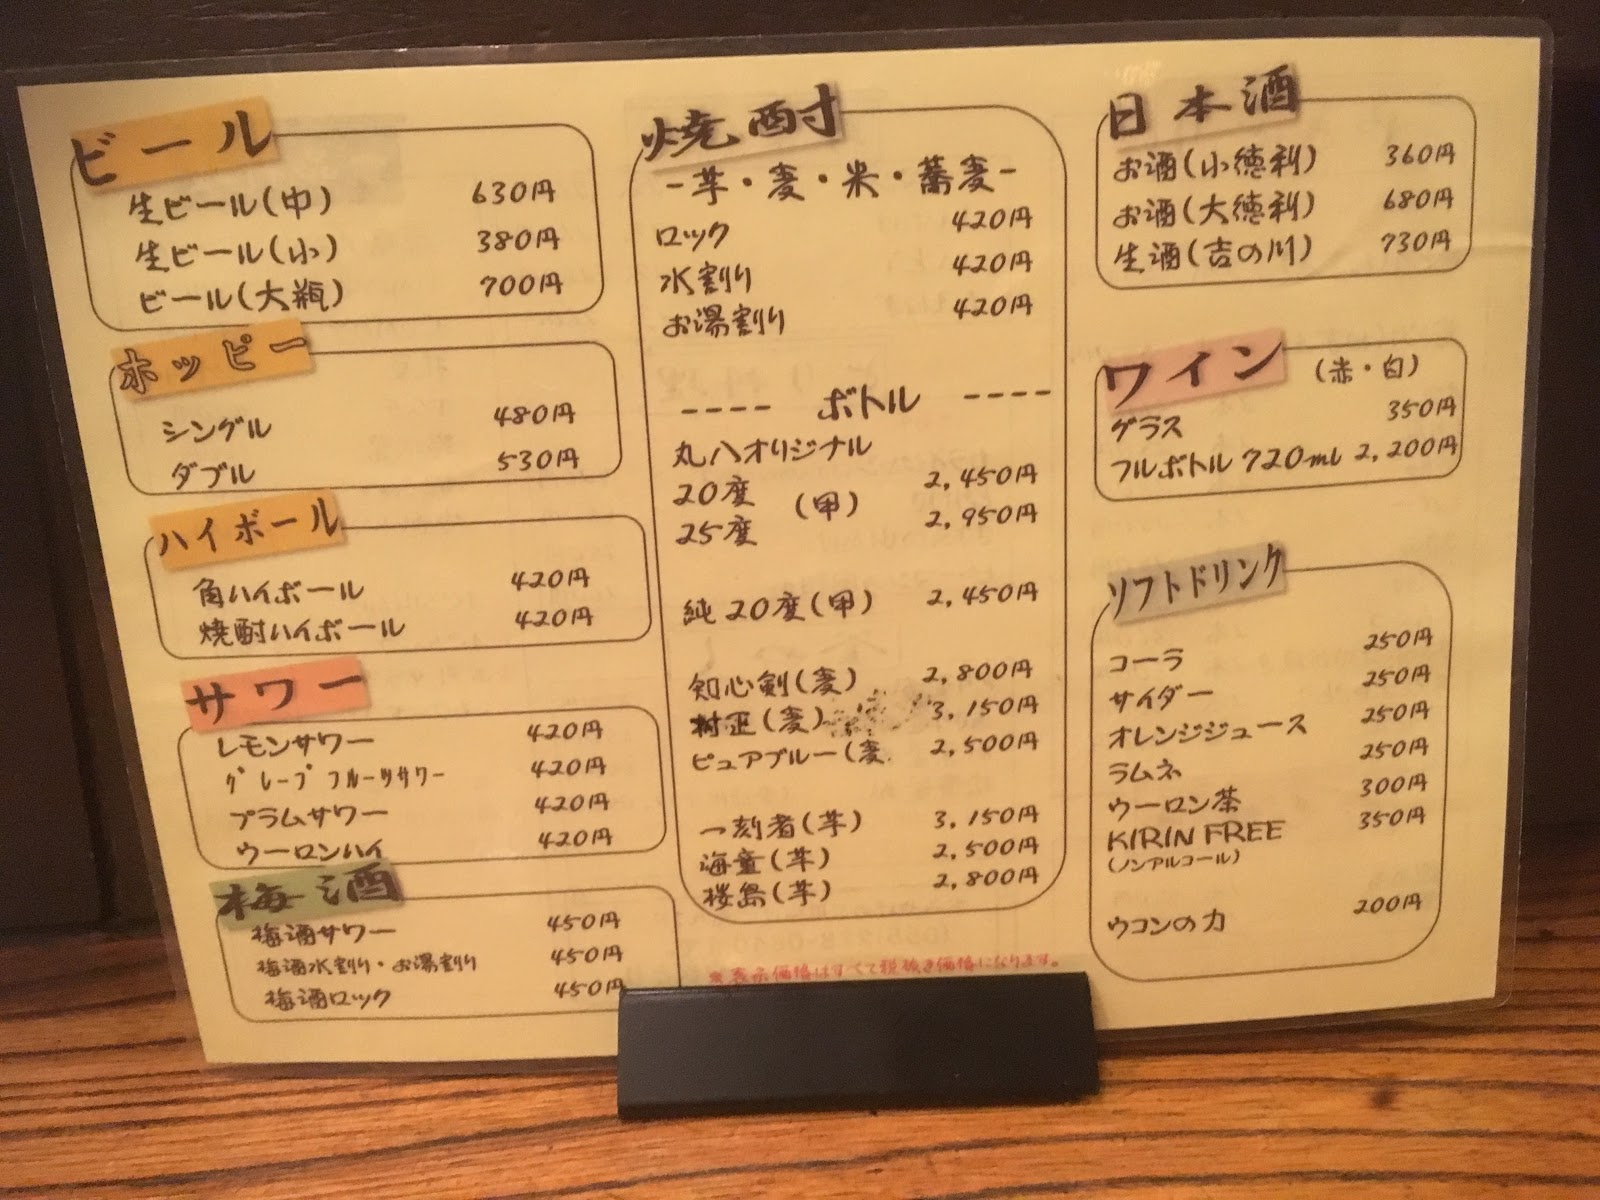 ビール
生ビール(中) 630円
生ビール(小) 380円
ビール(大瓶) 700円
ホッピー
シングル 480円
ダブル 530円
ハイボール
角ハイボール 420円
焼酎ハイボール 420円
サワー
レモンサワー 420円
グレープフルーツサワー 420円
プラムサワー 420円
ウーロンハイ 420円
梅酒
梅酒サワー 450円
梅酒水割り・お湯割り 450円
梅酒ロック 450円
焼酎
-芋・麦・米・蕎麦-
ロック 420円
水割り 420円
お湯割り 420円
---- ボトル ----
丸八オリジナル
20度 (甲) 2,450円
25度 2,950円
純20度(甲) 2,450円
知心剣(麦) 2,800円
村正(麦) 3,150円
ピュアブルー(麦 2,500円
一刻者(芋) 3,150円
海童(芋) 2,500円
桜島(芋) 2,800円
※表示価格はすべて税抜き価格になります。
日本酒
お酒(小徳利) 360円
お酒(大徳利) 680円
生酒(吉の川) 730円
ワイン (赤・白)
グラス 350円
フルボトル 720ml 2,200円
ソフトドリンク
コーラ 250円
サイダー 250円
オレンジジュース 250円
ラムネ 250円
ウーロン茶 300円
KIRIN FREE 350円
(ノンアルコール)
ウコンの力 200円